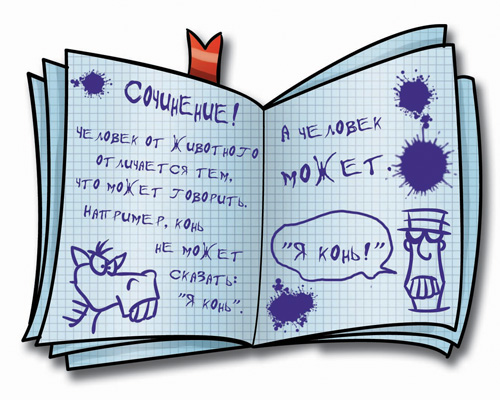 Сочинение!
Человек от животного
отличается тем,
что может говорить.
Например, конь
не может
сказать:
"Я конь".
А человек
может.
"Я конь!"